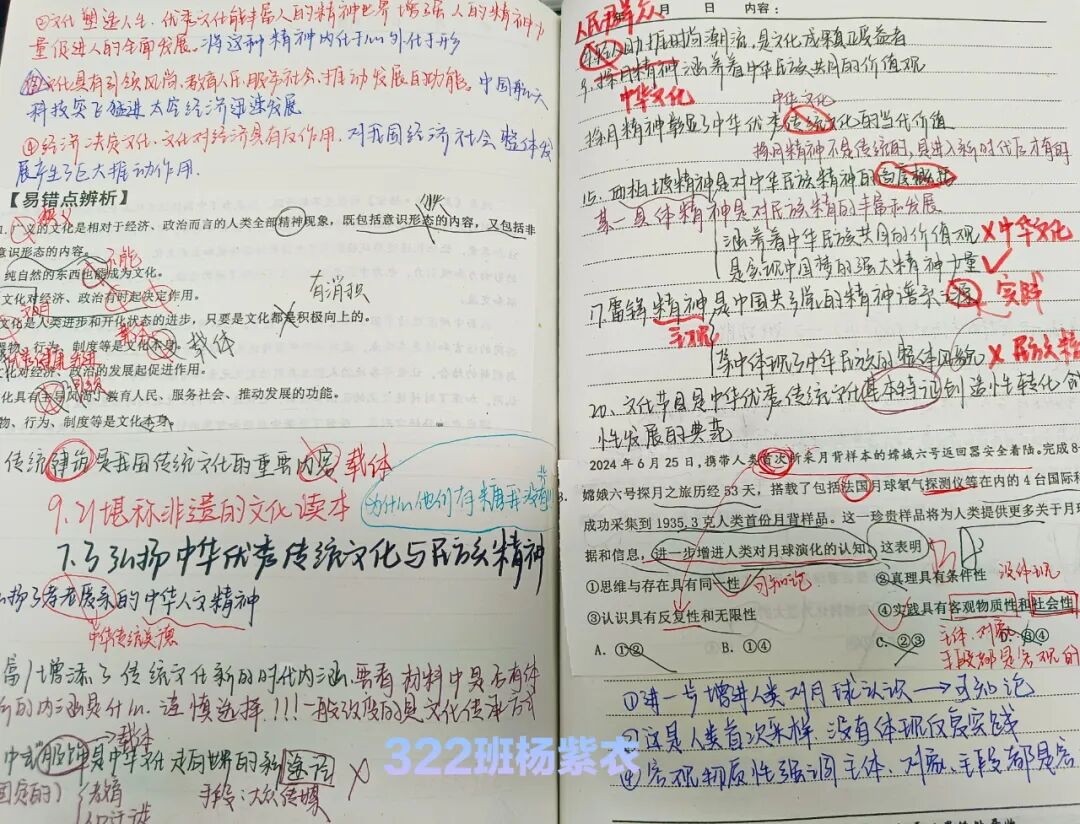 ②文化塑造人生,优秀文化能丰富人的精神世界 增强人的精神力
量促进人的全面发展。将这种精神内化于心外化于形
文化具有引领风尚、教育人民、服务社会、推动发展的功能。中国航天
科技突飞猛进 太空经济迅速发展
④经济决定文化,文化对经济具有反作用。对我国经济社会整体发
展产生了巨大推动作用.
【易错点辨析】
1. 广义的文化是相对于经济、政治而言的人类全部精神现象,既包括意识形态的内容,又包括非
意识形态的内容。
不能
纯自然的东西也能成为文化。
文化对经济、政治有时起决定作用。
有消积
文化是人类进步和开化状态的进步,只要是文化都是积极向上的。
载体
器物、行为、制度等是文化本身。载体
化对经济、政治的发展起促进作用。
化具有主导风尚、教育人民、服务社会、推动发展的功能。
物、行为、制度等是文化本身。
传统建筑是我国传统文化的重要内容 载体
为什么他们有糖我没有
9.21堪称非遗的文化读本
7.3弘扬中华优秀传统文化与民族精神
的中华人文精神
中华传统美德
增添了传统文化新的时代内涵,要看材料中是否有体
新的内涵是什么.谨慎选择!!!一般改变的是文化传承方式
载体
中式服饰是中华文化走向世界的新途径 ×
手段:大众传媒
人民群众
月 日 内容:
助推时尚潮流,是文化成果真正受益者
9.探月精神涵养着中华民族共同的价值观
中华文化
中华文化
探月精神彰显了中华优秀传统文化的当代价值
探月精神不是传统的,是进入新时代后才有的
15.西柏坡精神是对中华民族精神的高度概括
某一具体精神是对民族精神的丰富和发展
涵养着中华民族共同的价值观 ×中华文化
是实现中国梦的强大精神力量 ✓
17.雷锋精神是中国共产党的精神谱系之源 实践
集中体现了中华民族的整体风貌 ×民族精
20.文化节目是中华优秀传统文化基本特征创造性转化创
性发展的典范
2024 年 6 月 25 日,携带人类首次所采月背样本的嫦娥六号返回器安全着陆。完成 8
嫦娥六号探月之旅历经 53 天,搭载了包括法国月球氡气探测仪等在内的 4 台国际科
成功采集到 1935.3 克人类首份月背样品。这一珍贵样品将为人类提供更多关于月球
据和信息,进一步增进人类对月球演化的认知。这表明
①思维与存在具有同一性 可知论 ②真理具有条件性 没体现
③认识具有反复性和无限性 ④实践具有客观物质性和社会性
A. ①② B. ①④ C. ②③ D. ③④
主体、对象
手段都是客观的
①进一步增进人类对月球认识→可知论
②这是人类首次采样,没有体现反复实践
④客观物质性强调主体、对象、手段都是客
322班杨紫衣